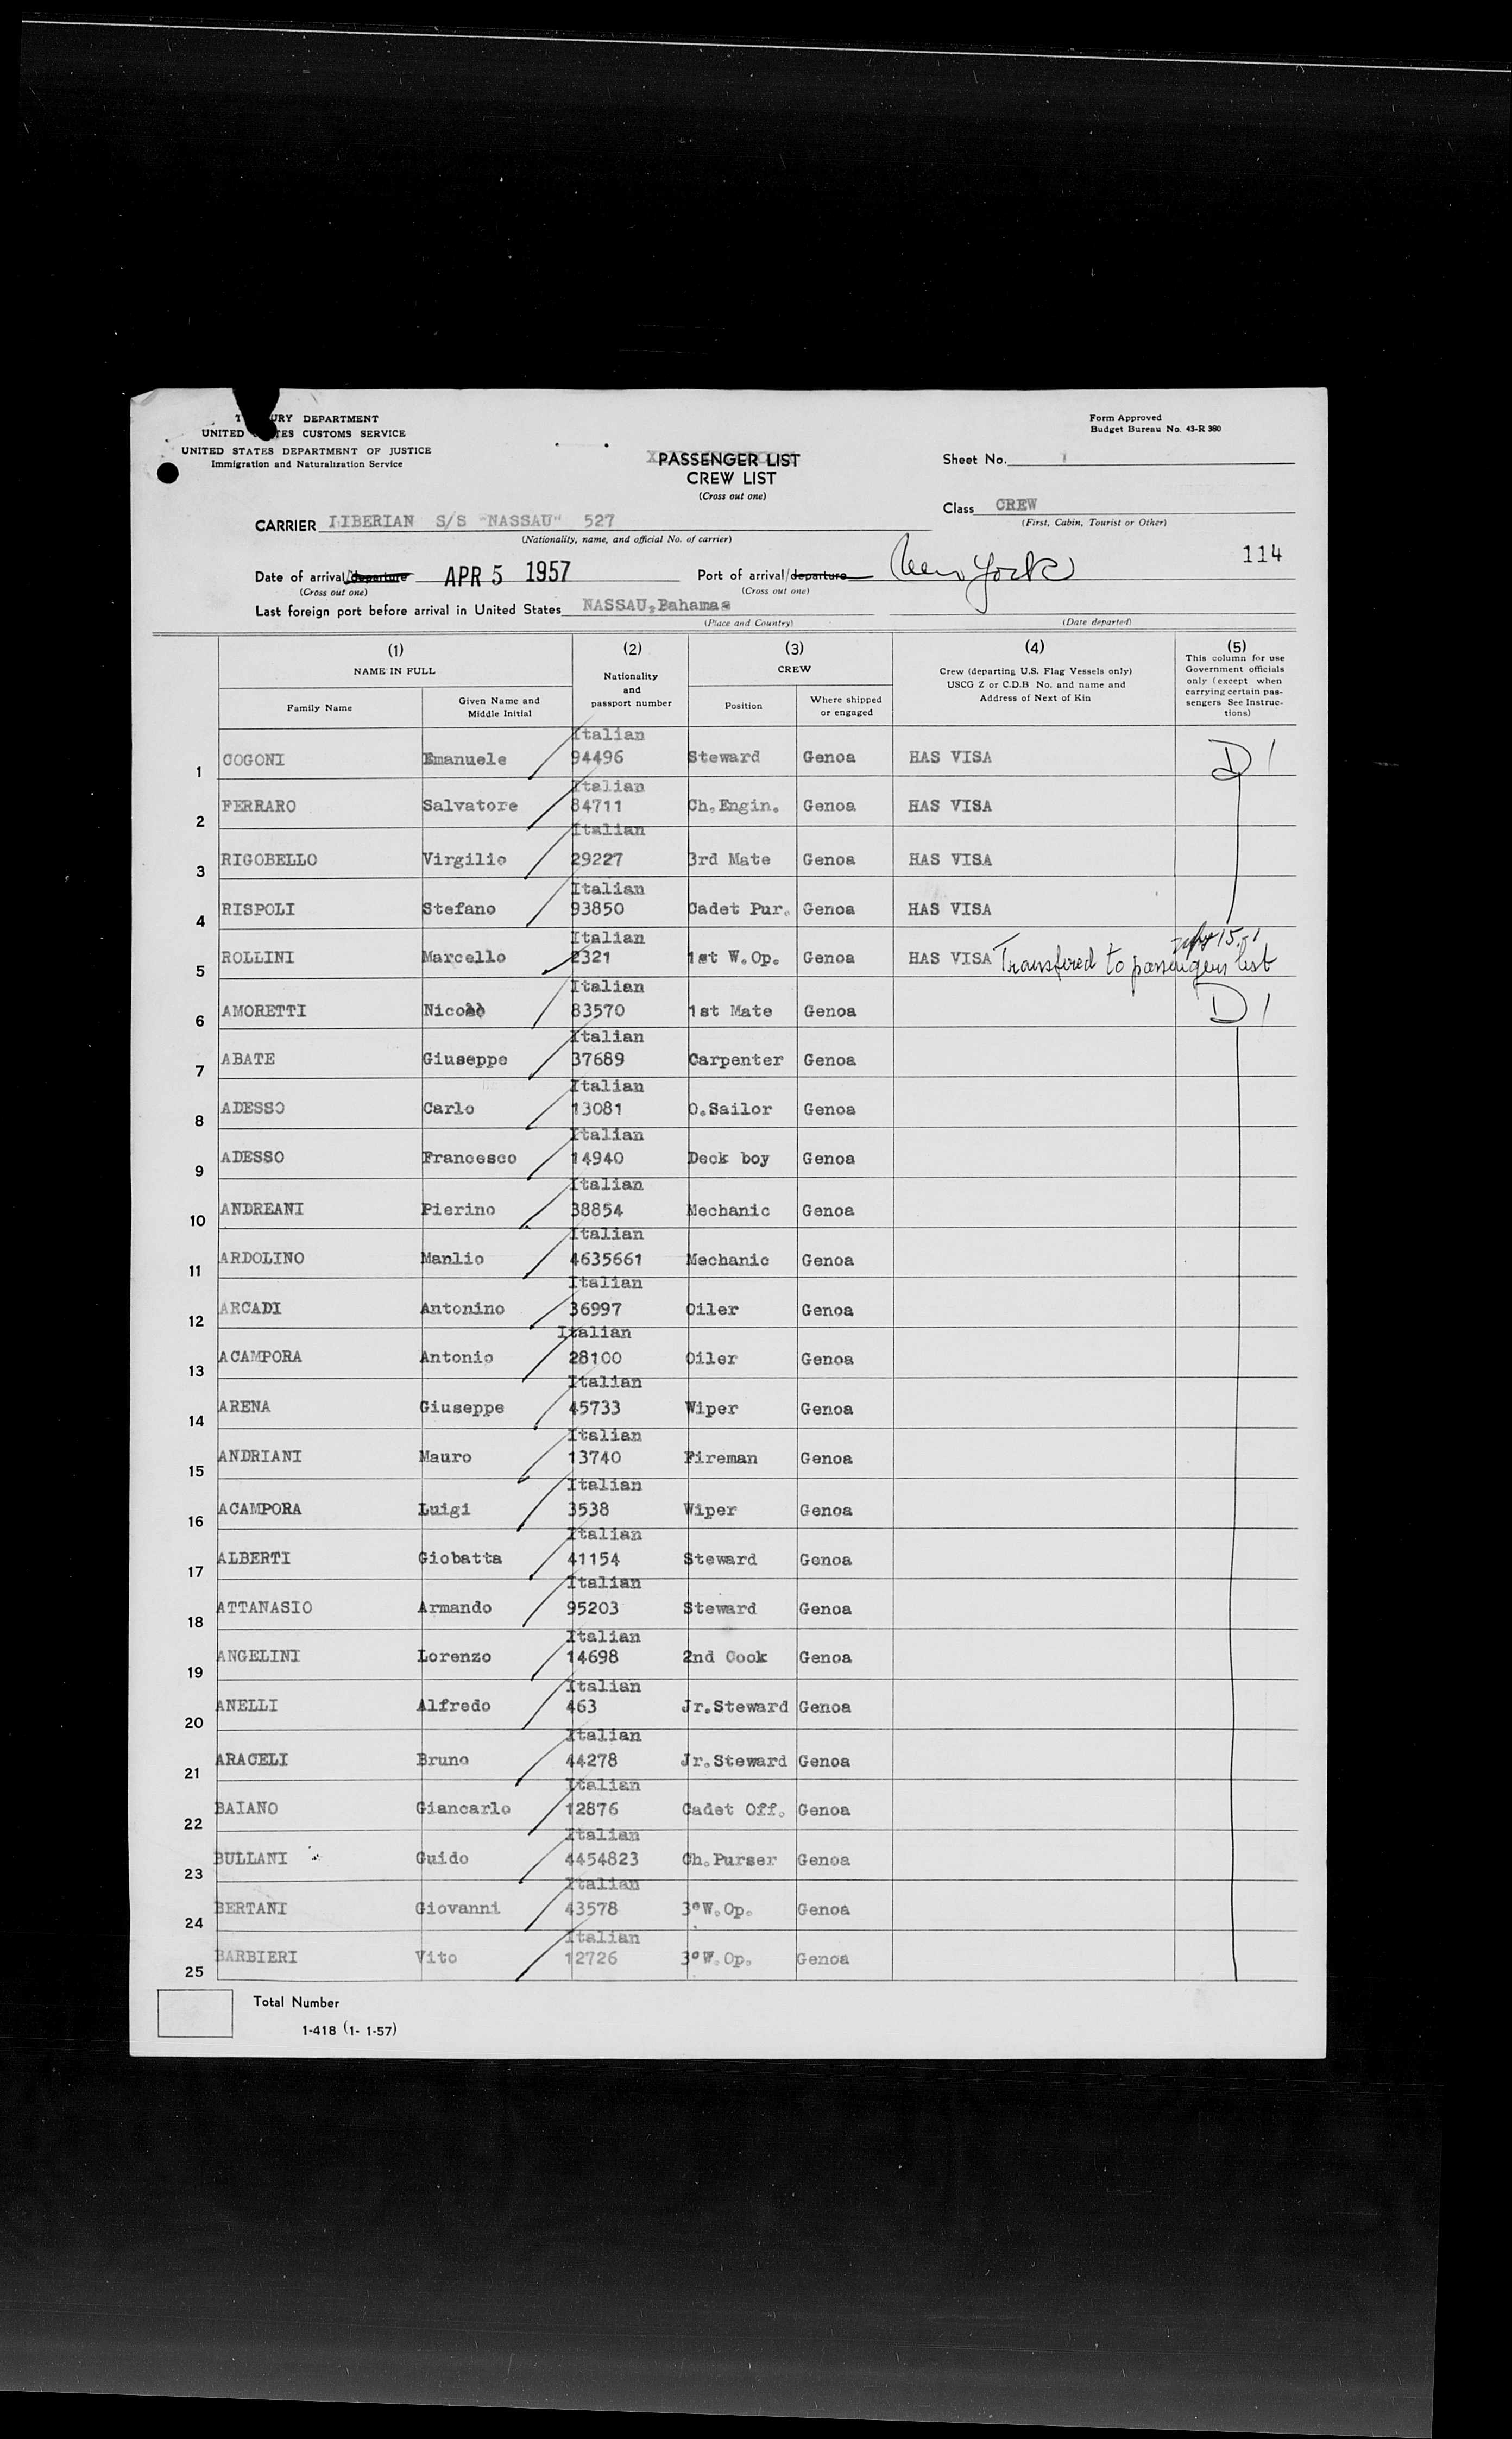 URY DEPARTMENT
UNITED TES CUSTOMS SERVICE
UNITED STATES DEPARTMENT OF JUSTICE
Immigration and Naturalization Service
Form Approved
Budget Bureau No. 43-R 380
PASSENGER LIST
CREW LIST
(Cross out one)
Sheet No. 1
Class CREW
(First, Cabin, Tourist or Other)
CARRIER LIBERIAN S/S "NASSAU" 527
(Nationality, name, and official No. of carrier)
114
Date of arrival/departure APR 5 1957 Port of arrival/departure New York
(Cross out one) (Cross out one)
Last foreign port before arrival in United States NASSAU, Bahamas
(Place and Country) (Date departed)
(1) (2) (3) (4) (5)
NAME IN FULL
Family Name
Given Name and Middle Initial
Nationality and passport number
CREW
Position
Where shipped or engaged
Crew (departing U.S. Flag Vessels only)
USCG Z or C.D.B No. and name and
Address of Next of Kin
This column for use
Government officials
only (except when
carrying certain pas-
sengers See Instruc-
tions)
Italian
1 COGONI Emanuele 94496 Steward Genoa HAS VISA D 1
Italian
2 FERRARO Salvatore 84711 Ch.Engin. Genoa HAS VISA
Italian
3 RIGOBELLO Virgilio 29227 3rd Mate Genoa HAS VISA
Italian
4 RISPOLI Stefano 93850 Cadet Pur. Genoa HAS VISA
Italian
5 ROLLINI Marcello 2321 1st W.Op. Genoa HAS VISA Transfered to passengers list
Italian
6 AMORETTI Nicolò 83570 1st Mate Genoa D 1
Italian
7 ABATE Giuseppe 37689 Carpenter Genoa
Italian
8 ADESSO Carlo 13081 O.Sailor Genoa
Italian
9 ADESSO Francesco 14940 Deck boy Genoa
Italian
10 ANDREANI Pierino 38854 Mechanic Genoa
Italian
11 ARDOLINO Manlio 4635661 Mechanic Genoa
Italian
12 ARCADI Antonino 36997 Oiler Genoa
Italian
13 ACAMPORA Antonio 28100 Oiler Genoa
Italian
14 ARENA Giuseppe 45733 Wiper Genoa
Italian
15 ANDRIANI Mauro 13740 Fireman Genoa
Italian
16 ACAMPORA Luigi 3538 Wiper Genoa
Italian
17 ALBERTI Giobatta 41154 Steward Genoa
Italian
18 ATTANASIO Armando 95203 Steward Genoa
Italian
19 ANGELINI Lorenzo 14698 2nd Cook Genoa
Italian
20 ANELLI Alfredo 463 Jr.Steward Genoa
Italian
21 ARACELI Bruno 44278 Jr.Steward Genoa
Italian
22 BAIANO Giancarlo 12876 Cadet Off. Genoa
Italian
23 BULLANI Guido 4454823 Ch.Purser Genoa
Italian
24 BERTANI Giovanni 43578 3°W.Op. Genoa
Italian
25 BARBIERI Vito 12726 3°W.Op. Genoa
Total Number
1-418 (1- 1-57)